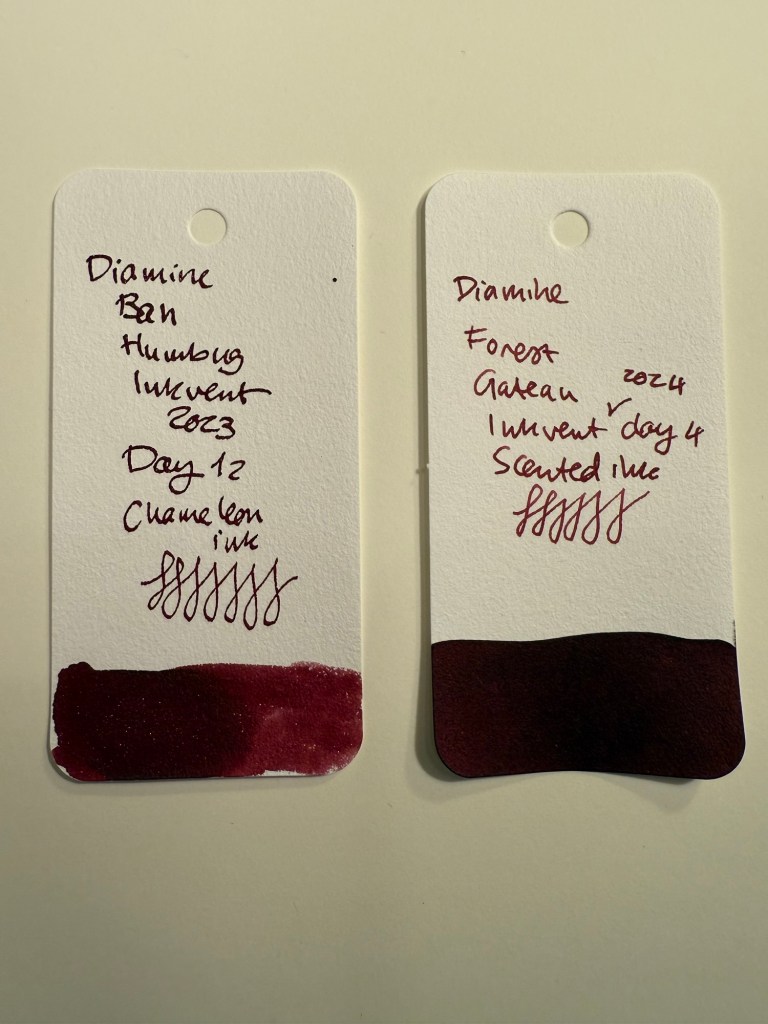 Diamine
Bah
Humbug
Inkvent
2023
Day 12
Chameleon
ink
Diamine
Forest
Gateau 2024
Inkvent day 4
Scented ink